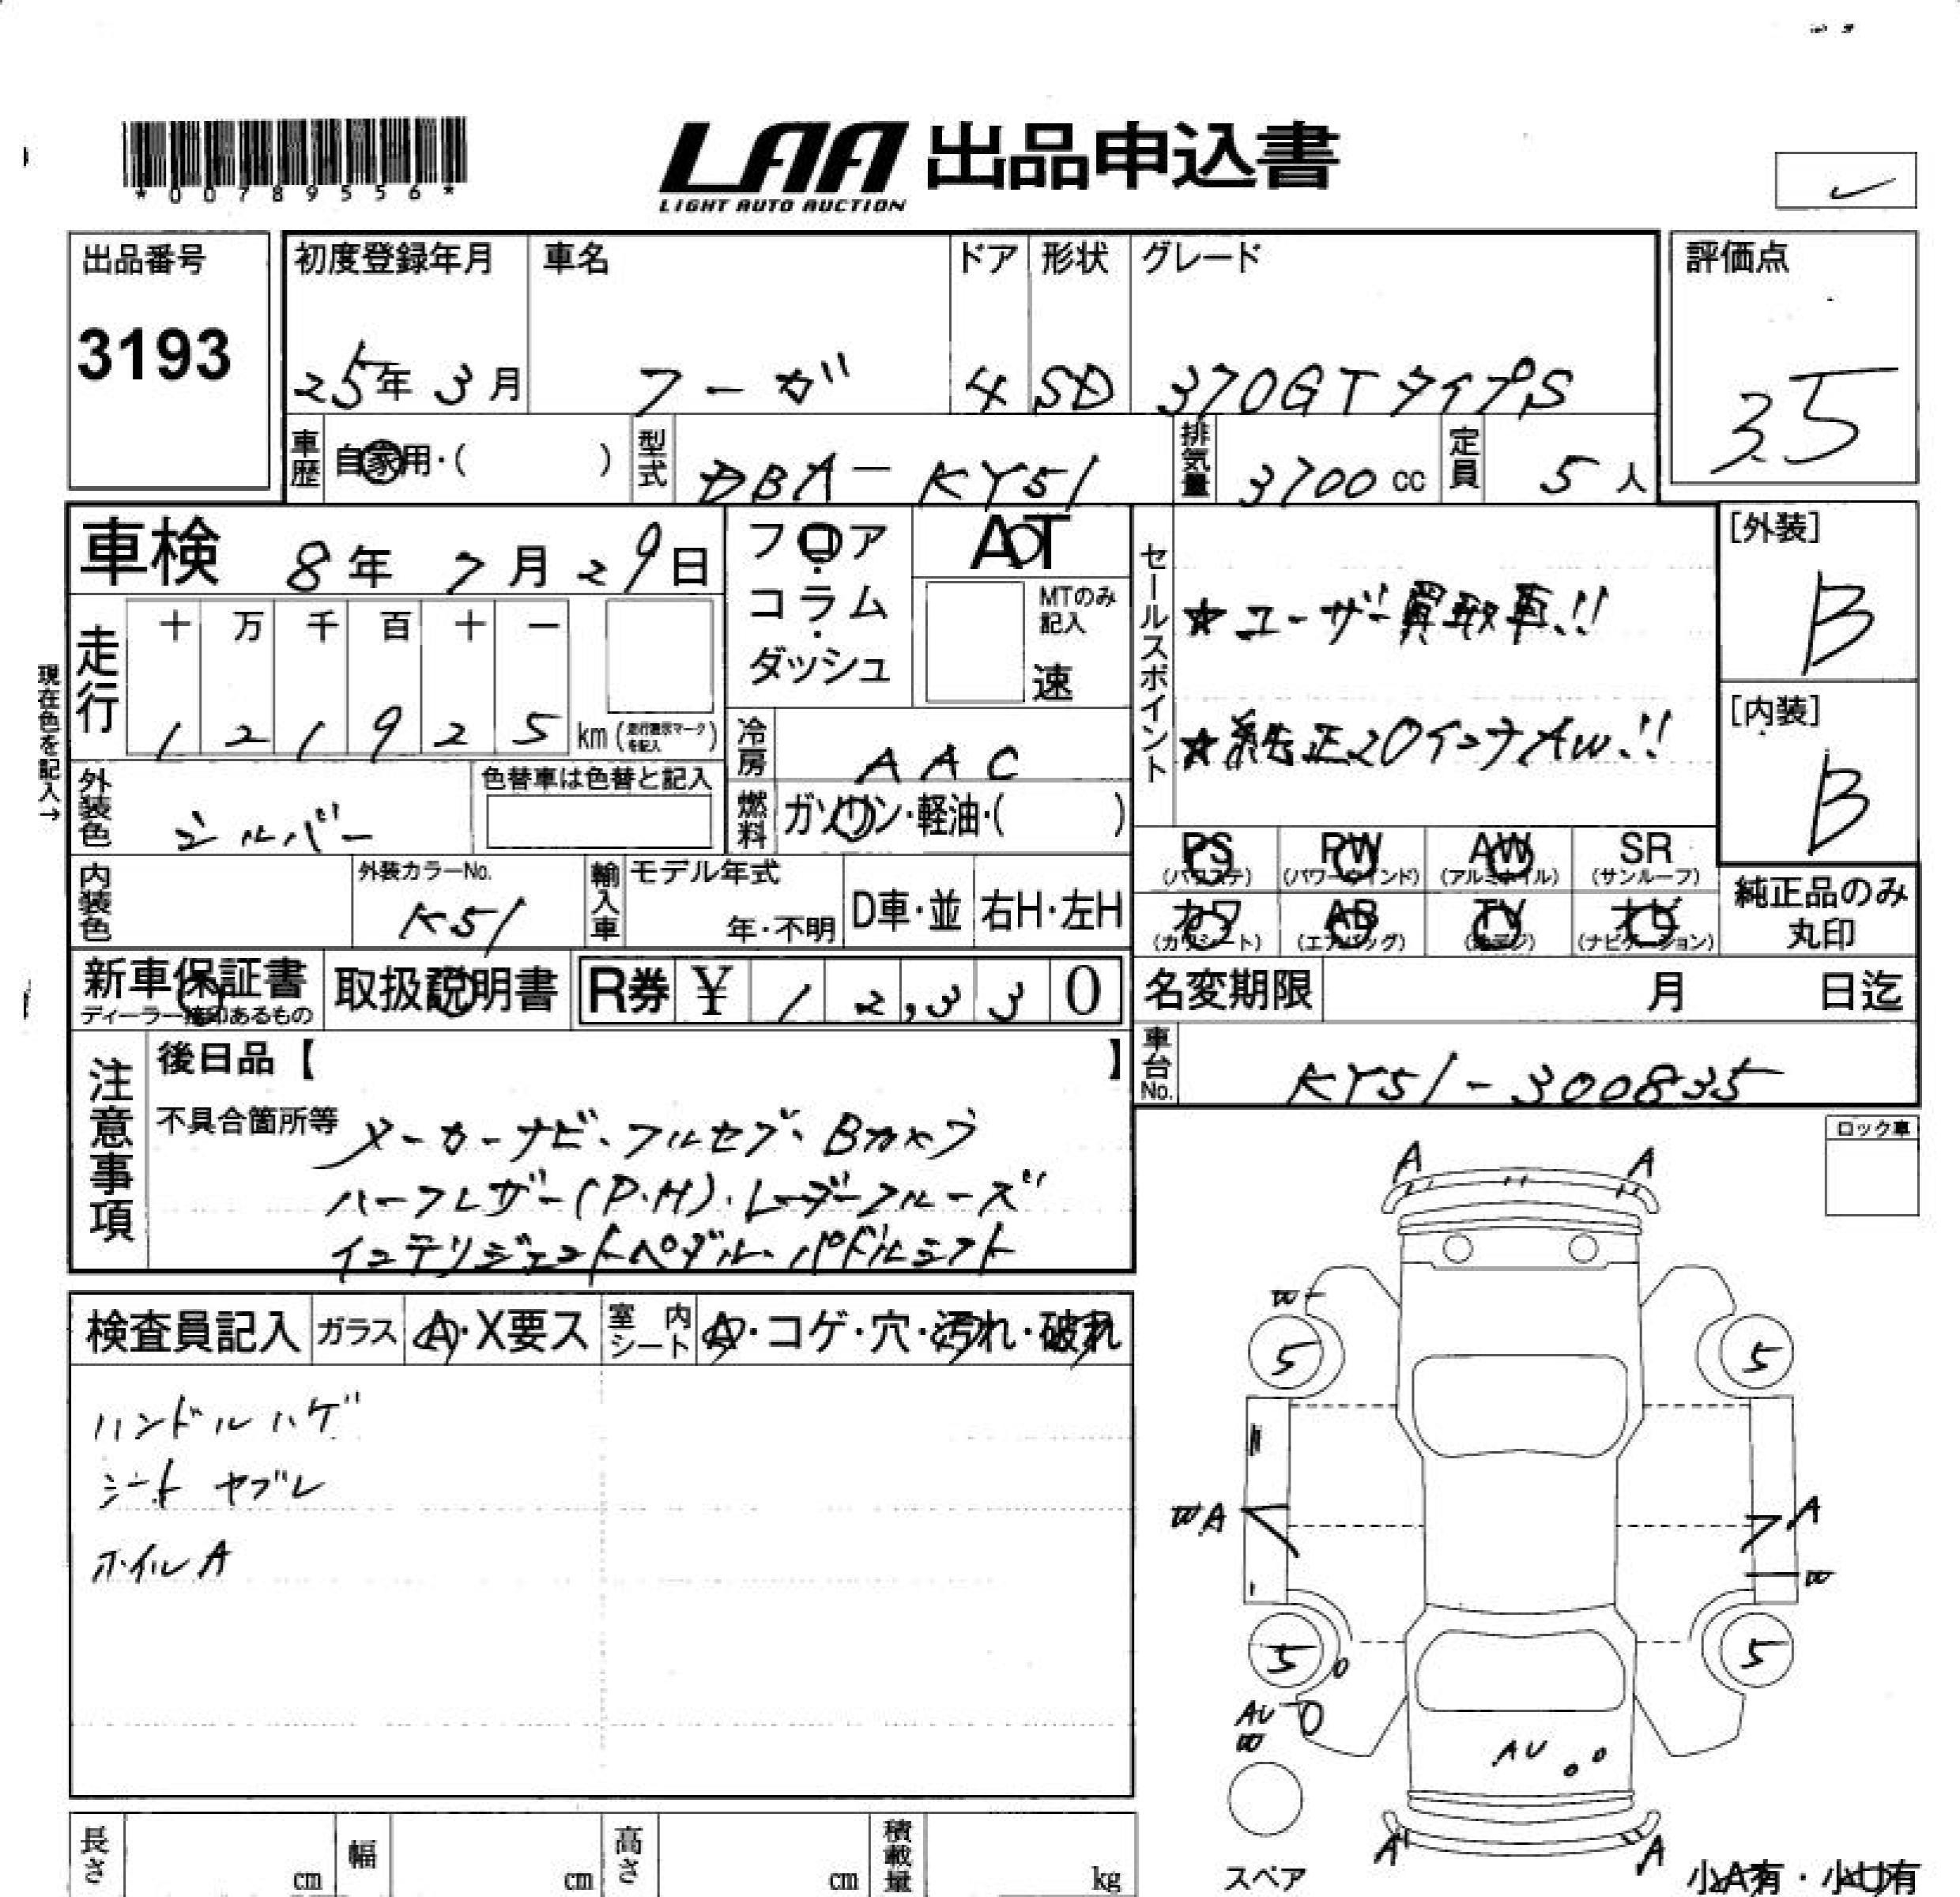 *00789556*
LAA 出品申込書
LIGHT AUTO AUCTION
出品番号
3193
初度登録年月
25年3月
車名
フーガ
ドア
4
形状
SD
グレード
370GTタイプS
評価点
35
車歴
自家用・( )
型式
DBA-KY51
排気量
3700 cc
定員
5人
車検 8年 7月 29日
フロア・コラム・ダッシュ
AT
MTのみ記入
速
走行
十 万 千 百 十 一
1 2 1 9 2 5 km(走行表示マークを記入)
現在色を記入→
冷房
AAC
燃料
ガソリン・軽油・( )
外装色
シルバー
色替車は色替と記入
内装色
外装カラーNo.
K51
輸入車
モデル年式
年・不明
D車・並
右H・左H
セールスポイント
★ユーザー買取車!!
★純正20インチAW!!
[外装]
B
[内装]
B
PS (パワステ)
PW (パワーウインド)
AW (アルミホイル)
SR (サンルーフ)
カワ (カワシート)
AB (エアバッグ)
TV (テレビ)
ナビ (ナビゲーション)
純正品のみ
丸印
新車保証書
ディーラー捺印あるもの
取扱説明書
R券 ¥ 12,330
名変期限 月 日迄
車台No.
KY51-300835
注意事項
後日品【 】
不具合箇所等
メーカーナビ・フルセグ・Bカメラ
ハーフレザー(P・H)・レーダークルーズ
インテリジェントペダル・パドルシフト
ロック車
検査員記入
ガラス
A・X要ス
室内シート
A・コゲ・穴・汚れ・破れ
ハンドルハゲ
シートヤブレ
ホイルA
A A
W
5 5
WA A
W
5 5
AU
W
AU
A A
スペア
小A有・小U有
長さ cm
幅 cm
高さ cm
積載量 kg